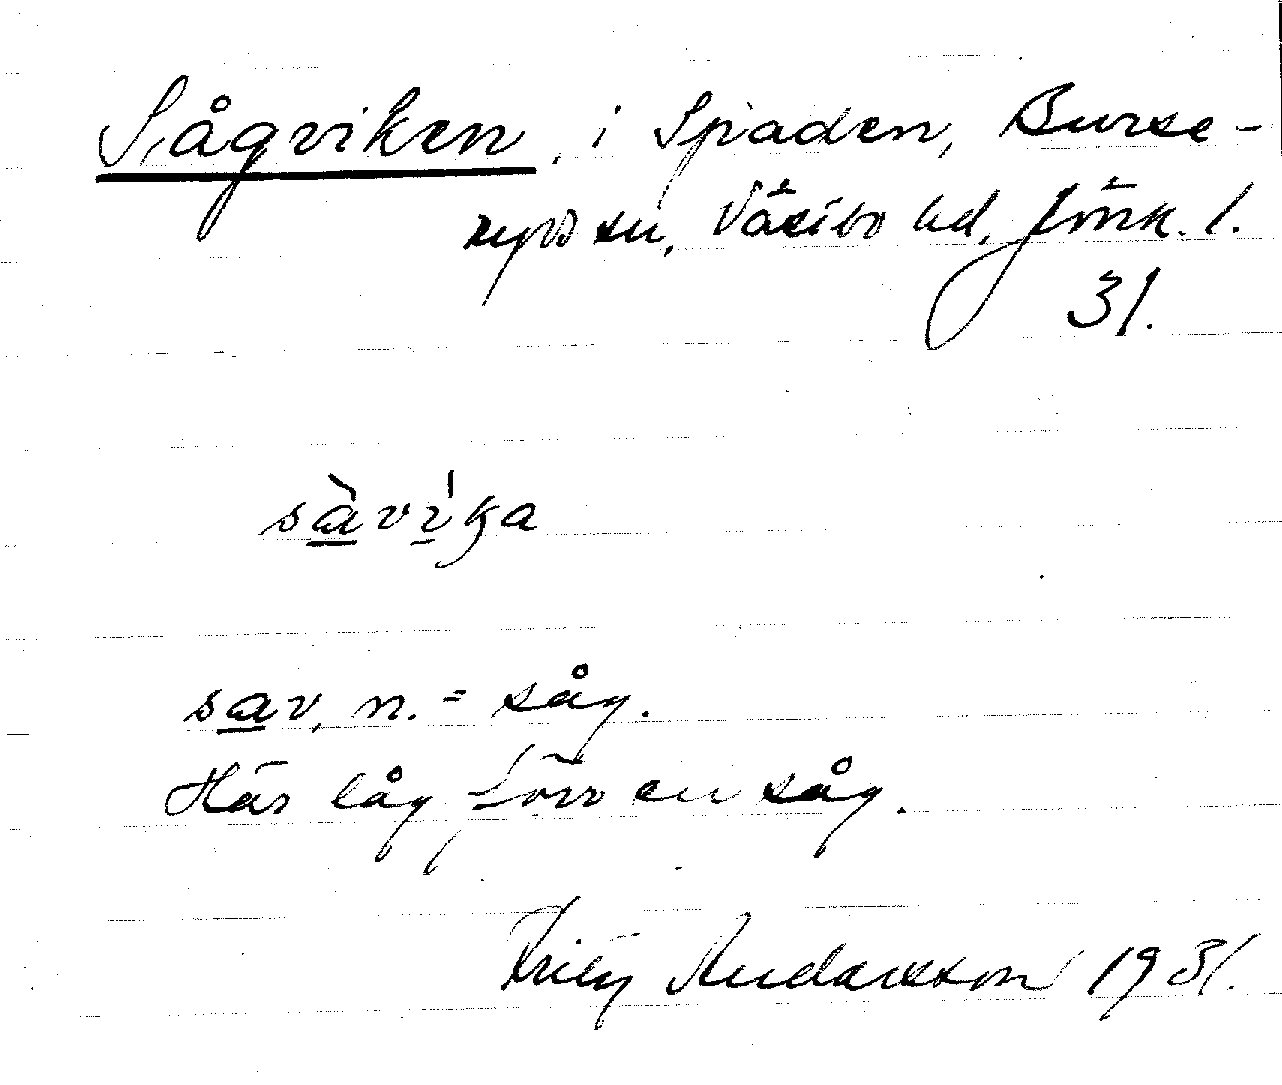 Sågviken, i Spaden, Burse-
ryds sn, Västbo hd, Jönk. l.
31.
sàvi̍ka
sav, n. = såg.
Här låg förr en såg.
Fritz Andersson 1931.